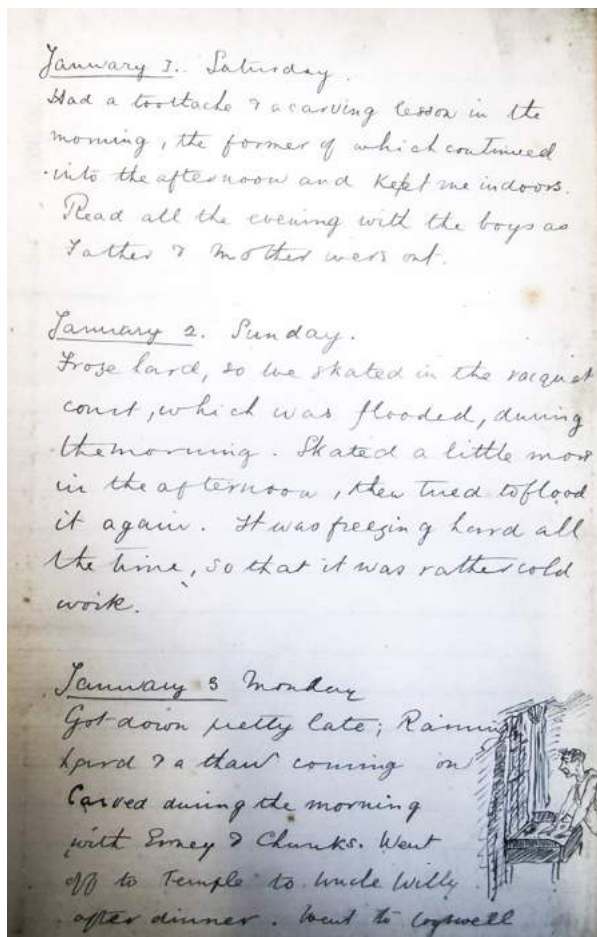 January 1. Saturday.
Had a toothache & a carving lesson in the
morning, the former of which continued
into the afternoon and kept me indoors.
Read all the evening with the boys as
Father & Mother were out.
January 2. Sunday.
Froze hard, so we skated in the racquet
court, which was flooded, during
the morning. Skated a little more
in the afternoon, then tried to flood
it again. It was freezing hard all
the time, so that it was rather cold
work.
January 3 Monday
Got down pretty late; Raining
hard & a thaw coming on
Carved during the morning
with Erney & Chunks. Went
off to Temple to Uncle Willy
after dinner. Went to